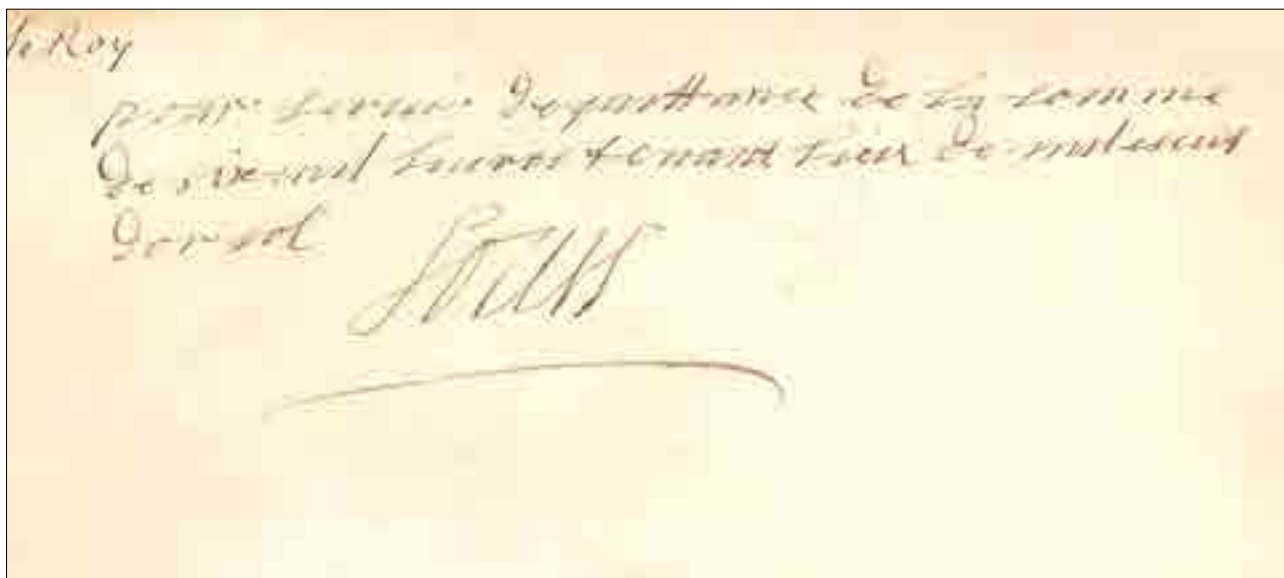 le Roy
pour servir de quittance de la somme
de six mil livres tenant lieu de mil escus
dor sol